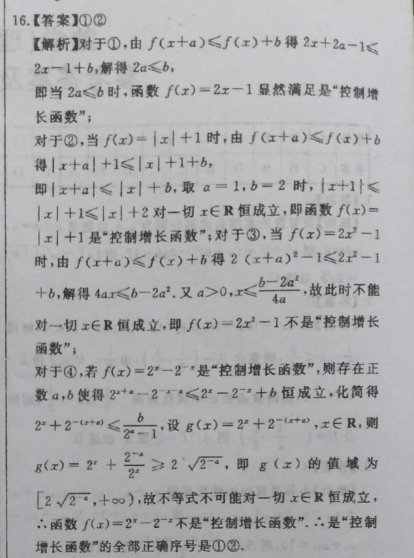 16.【答案】①②
【解析】对于①,由 f(x+a)≤f(x)+b 得 2x+2a-1≤
2x-1+b,解得 2a≤b,
即当 2a≤b 时,函数 f(x)=2x-1 显然满足是“控制增
长函数”;
对于②,当 f(x)=|x|+1 时,由 f(x+a)≤f(x)+b
得|x+a|+1≤|x|+1+b,
即|x+a|≤|x|+b,取 a=1,b=2 时,|x+1|≤
|x|+1≤|x|+2 对一切 x∈R 恒成立,即函数 f(x)=
|x|+1 是“控制增长函数”;对于③,当 f(x)=2x²-1
时,由 f(x+a)≤f(x)+b 得 2 (x+a)²-1≤2x²-1
+b,解得 4ax≤b-2a².又 a>0,x≤\frac{b-2a²}{4a},故此时不能
对一切 x∈R 恒成立,即 f(x)=2x²-1 不是“控制增长
函数”;
对于④,若 f(x)=2^x-2^{-x}是“控制增长函数”,则存在正
数 a,b 使得 2^{x+a}-2^{-x-a}≤2^x-2^{-x}+b 恒成立,化简得
2^x+2^{-(x+a)}≤\frac{b}{2^a-1},设 g(x)=2^x+2^{-(x+a)},x∈R,则
g(x)=2^x+\frac{2^{-a}}{2^x}≥2\sqrt{2^{-a}},即 g(x)的值域为
[2\sqrt{2^{-a}},+∞),故不等式不可能对一切 x∈R 恒成立,
∴函数 f(x)=2^x-2^{-x}不是“控制增长函数”.∴是“控制
增长函数”的全部正确序号是①②.